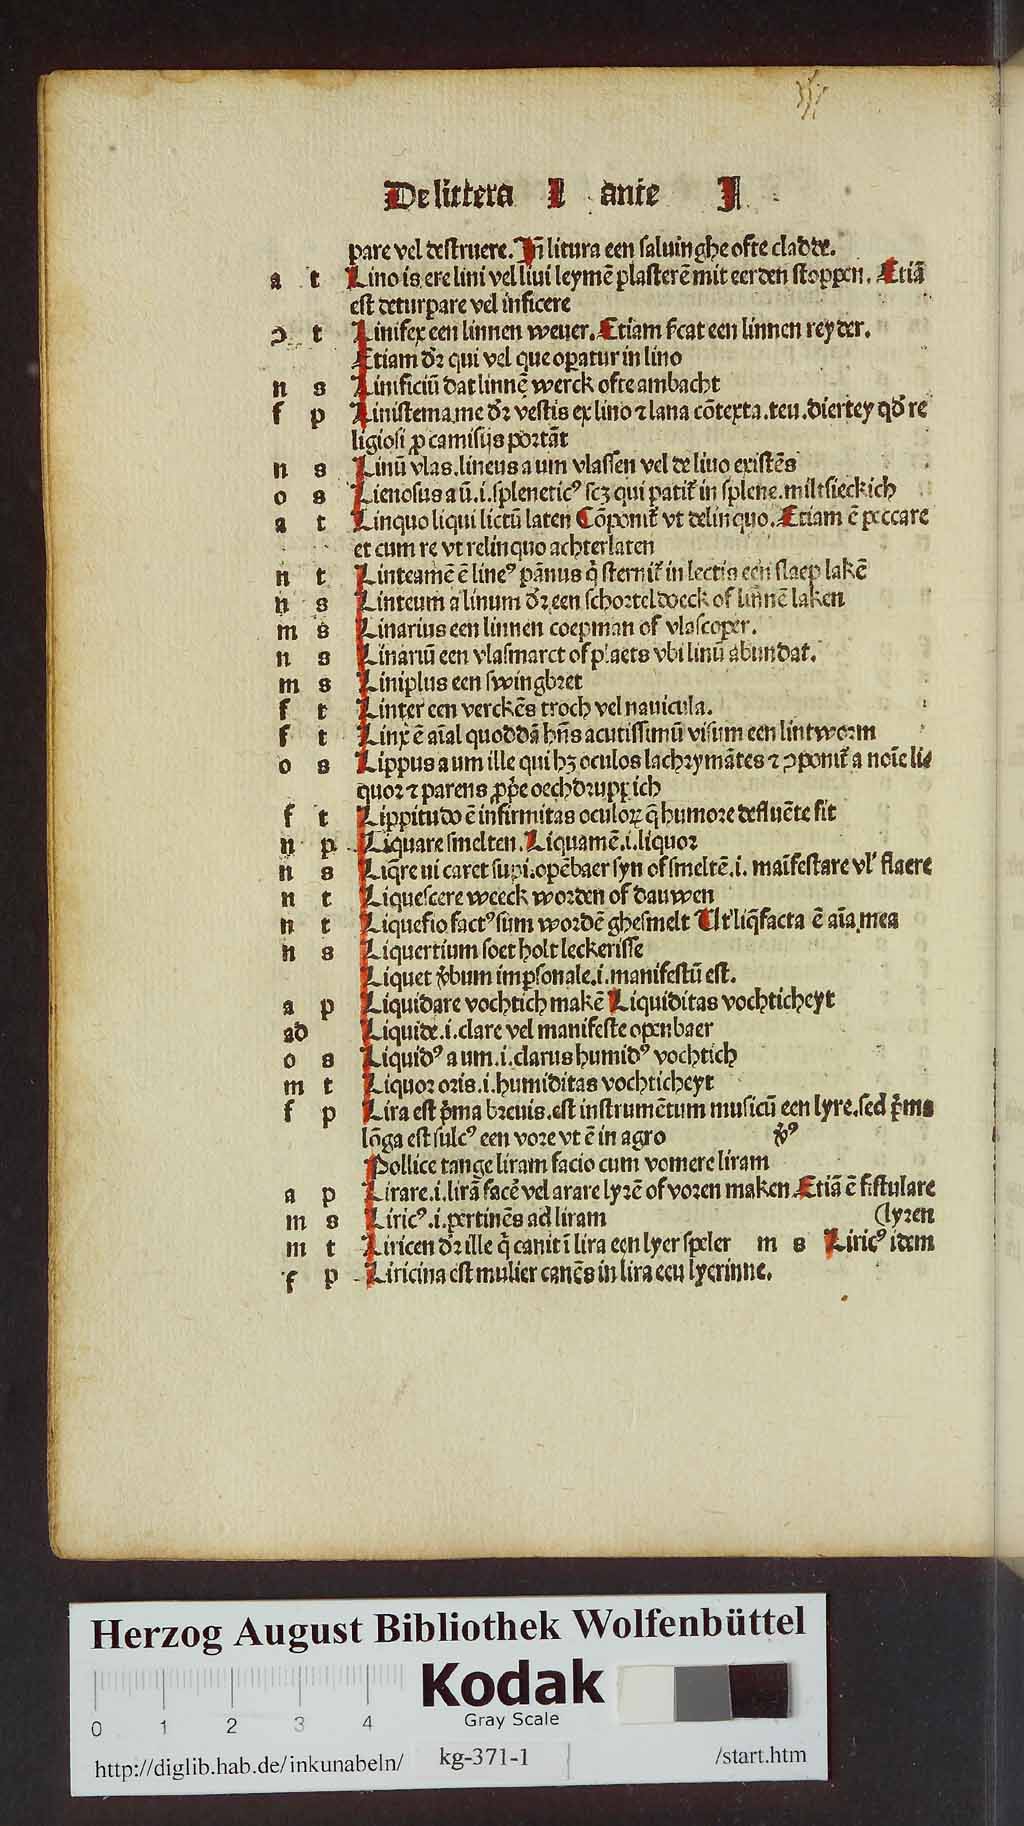 De littera L ante I
pare vel destruere. Jñ litura een saluinghe ofte cladde.
a t Lino is ere lini vel liui leymē plasterē mit eerden stoppen. Etiā
est deturpare vel inficere
ↄ t Linifex een linnen weuer. Etiam sīcat een linnen reyder.
Etiam dꝛ qui vel que opatur in lino
n s Linificiū dat linnē werck ofte ambacht
f p Linistema.me dꝛ vestis ex lino ⁊ lana cōtexta.teu.diertey qđ re
ligiosi ꝓ camisijs poꝛtāt
n s Linū vlas.lineus a um vlassen vel de liuo existēs
o s Lienosus a ū.i.splenetic⁹ scꝫ qui patit᷑ in splene.miltsieckich
a t Linquo liqui lictū laten Cōponit᷑ vt delinquo. Etiam ē peccare
et cum re vt relinquo achterlaten
n t Linteamē ē line⁹ pānus q̇ sternit᷑ in lectis een slaep lakē
n s Linteum a linum dꝛ een schoꝛteldoeck of linnē laken
m s Linarius een linnen coepman of vlascoper.
n s Linariū een vlasmarct of plaets vbi linū abundat.
m s Liniplus een swingbꝛet
f t Linter een verckēs troch vel nauicula.
f t Linx ē aīal quoddā hn̄s acutissimū visum een lintwoꝛm
o s Lippus a um ille qui hꝫ oculos lachꝛymātes ⁊ ↄponit᷑ a noīe li⸗
quoꝛ ⁊ parens ꝓpe oechdꝛuppich
f t Lippitudo ē infirmitas oculoꝝ q̄ humoꝛe defluēte fit
n p Liquare smelten. Liquamē.i.liquoꝛ
n s Liq̄re ui caret supi.opēbaer syn of smeltē.i. maīfestare vl' flaere
n t Liquescere weeck woꝛden of dauwen
n t Liquefio fact⁹ sum woꝛdē ghesmelt Ut liq̄facta ē aīa mea
n s Liquertium soet holt leckerisse
Liquet v̓bum imꝑsonale.i.manifestū est.
a p Liquidare vochtich makē Liquiditas vochticheyt
ad Liquide.i.clare vel manifeste openbaer
o s Liquid⁹ a um.i.clarus humid⁹ vochtich
m t Liquoꝛ oꝛis.i.humiditas vochticheyt
f p Lira est pͥma bꝛeuis.est instrumētum musicū een lyre.sed pͥma
lōga est sulc⁹ een voꝛe vt ē in agro v̓⁹
Pollice tange liram facio cum vomere liram
a p Lirare.i.lirā facē vel arare lyꝛē of voꝛen maken Etiā ē fistulare
m s Liric⁹.i.pertinēs ad liram (lyꝛen
m t Liricen dꝛ ille q̇ canit ī lira een lyer speler m s Liric⁹ idem
f p Liricina est mulier canēs in lira eeu lyerinne.
Herzog August Bibliothek Wolfenbüttel
Kodak
Gray Scale
0 1 2 3 4
http://diglib.hab.de/inkunabeln/ kg-371-1 /start.htm